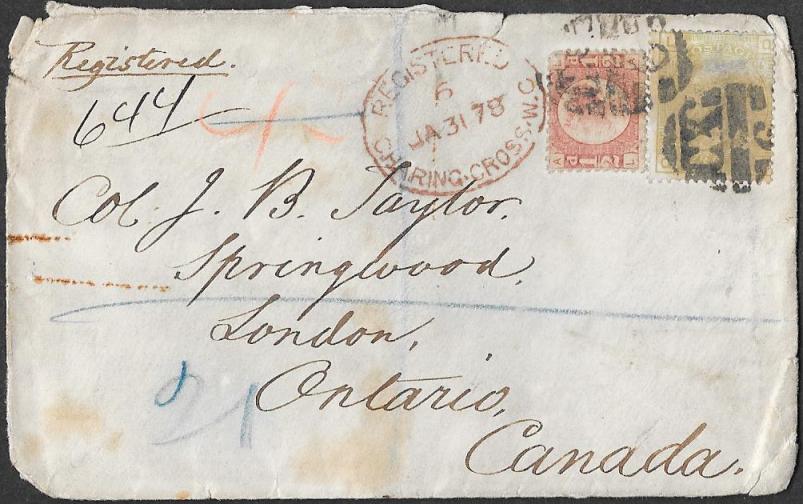 Registered.
644
REGISTERED
6
JA 31 78
CHARING.CROSS.W.C.
POSTAGE
Col. J. B. Taylor,
Springwood,
London,
Ontario,
Canada.
21